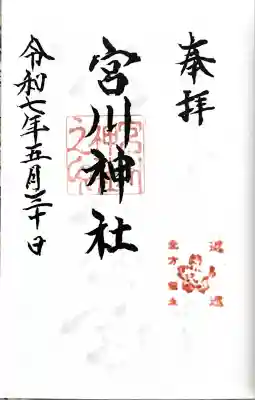 奉拝
宮川神社
令和七年五月三十日